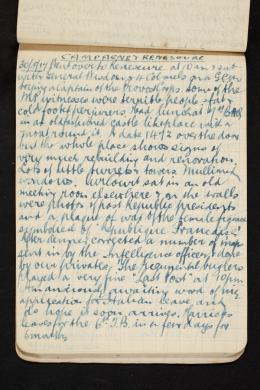 CAMPAGNE & RENESCURE
30/9/17 Went over to Renescure at 10 am & sat
with General Wisdom & 4 Colonels on a G.C.M.
trying a Captain of the Provost Corps. Some of the
M.P. witnesses were terrible people - fat &
cold footed perjurers. Had lunch at
in a dilapidated castle like place with a
moat round it. A date 1472 over the door
but the whole place shows signs of
very much rebuilding and renovation.
Lots of little turrets & towers Mullioned
windows. Our Court sat in an old
meeting room elsewhere & on the walls
were photos of past & present presidents
and a plaque of way of the female figure
symbolical of "Republique Francaise".
After dinner corrected a number of maps
sent in by the Intelligence officers, done
by our privates. The regimental buglers
played a very fine "Last Post" at 9 pm.
Am anxiously awaiting word of my
application for Italian leave, and
do hope it soon arrives. Harrison
leaves for the 6th T.B. in a few days for
6 months